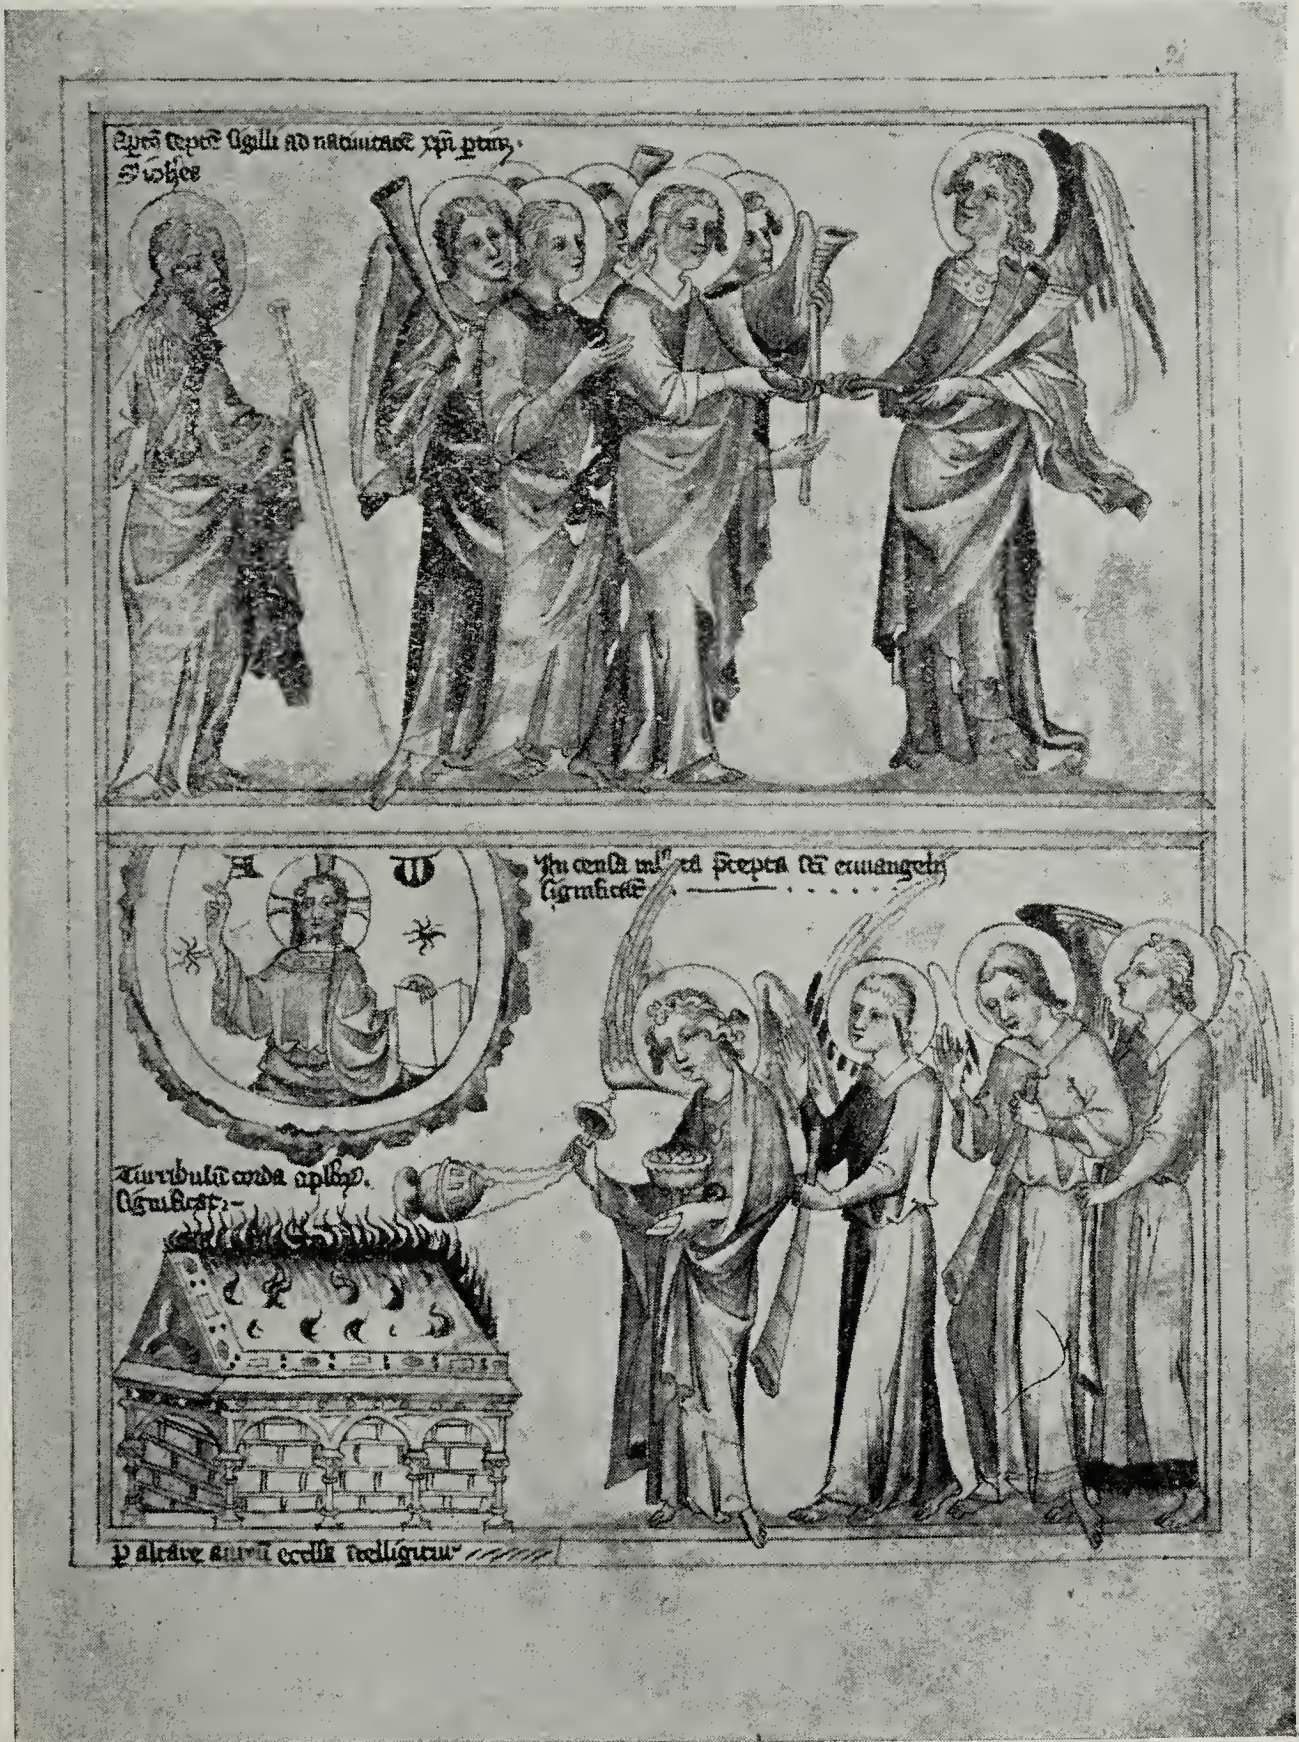 Apt̄o septē sigilli ad natiuitatē xp̄i p̄tin̄
S ioh̄es
A ω
In censa m̄ ta p̄cepta sc̄i euuangelij
significāt
Turribulū corda apl̄oꝝ
significat
ꝑ altare aureū eccl̄ia ītelligitur